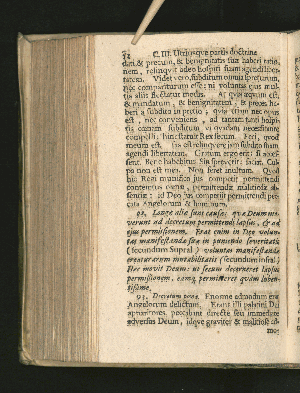 72 C. III. Utriusque partis doctrina
dari, & precum, & benignitatis suæ haberi ratio-
nem, relinquit adeo hospiti suam agendi liber-
tatem. Videt vero, subditum omnia
nec ; ni voluntas ejus mul-
tis aliis medus. At quia æquum est,
& mandatum, & benignitatem, & preces ha-
beri a subdito in pretio; quia tamen nec opus
est, nec conveniens, ad tantam hospi-
tis cœnam subditum vi quadam necessitante
compelli; hinc statuit Rex secum. Feci, quod
meum est. Jus est relinquere jam subdito suam
agendi libertatem. Gratum egerit; si acces-
serit. Bene habebitur. Sin spreverit; faciat. Cul-
pa non est mea. Non feret multum. Quod
hic Regi competit permittendi
contemtus permittendæ malitiosæ ab-
sentiæ; id Deo jus competit permittendi pec-
cata Angelorum & hominum.
92. Longe aliæ sunt causæ, quæ Deum mo-
verunt ad decretum permittendi lapsus, & ad
ejus permissionem. Erat enim in Deo volun-
tas manifestandæ suæ in puniendo severitatis
(secundum Supral.) voluntas manifestandæ
creaturarum mutabilitatis (secundum infral.)
Hæc movit Deum: ut secum decerneret lapsus
permissionem, eamq; permitteret quàm luben-
tissime.
93. Decretum pœnæ. Enorme admodum erat
Angelorum delictum. Erant illi palatini Dei
apparitores, peccabant directe seu immediate
adversus Deum, idque graviter & malitiose ad-
mo-